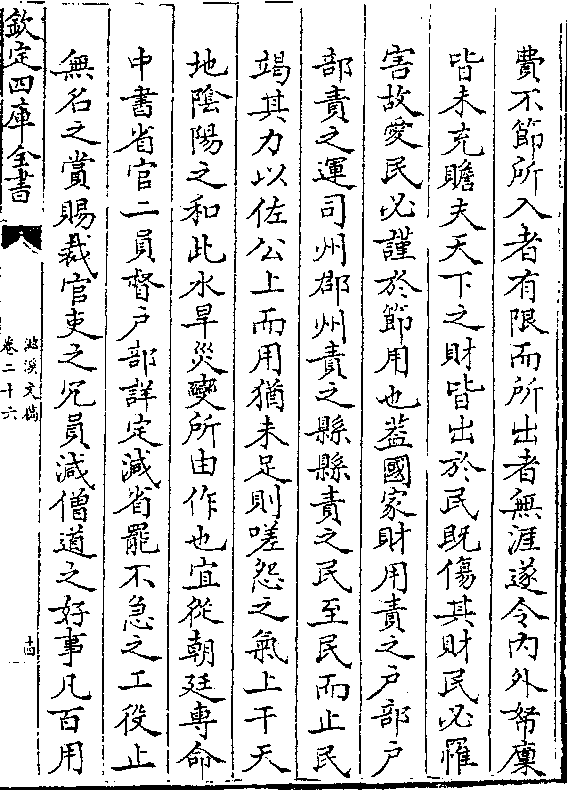 費不節所入者有限而所出者無涯遂令内外帑廩
皆未充贍夫天下之財皆出於民既傷其財民必罹
害故愛民必謹於節用也葢國家財用責之户部户
部責之運司州郡州責之縣縣責之民至民而止民
竭其力以佐公上而用猶未足則嗟怨之氣上干天
地隂陽之和此水旱災變所由作也宜從朝廷専命
中書省官二員督户部詳定減省罷不急之工役止
無名之賞賜裁官吏之冗員減僧道之好事凡百用
欽定四庫全書
滋溪文稿
卷二十六
十四